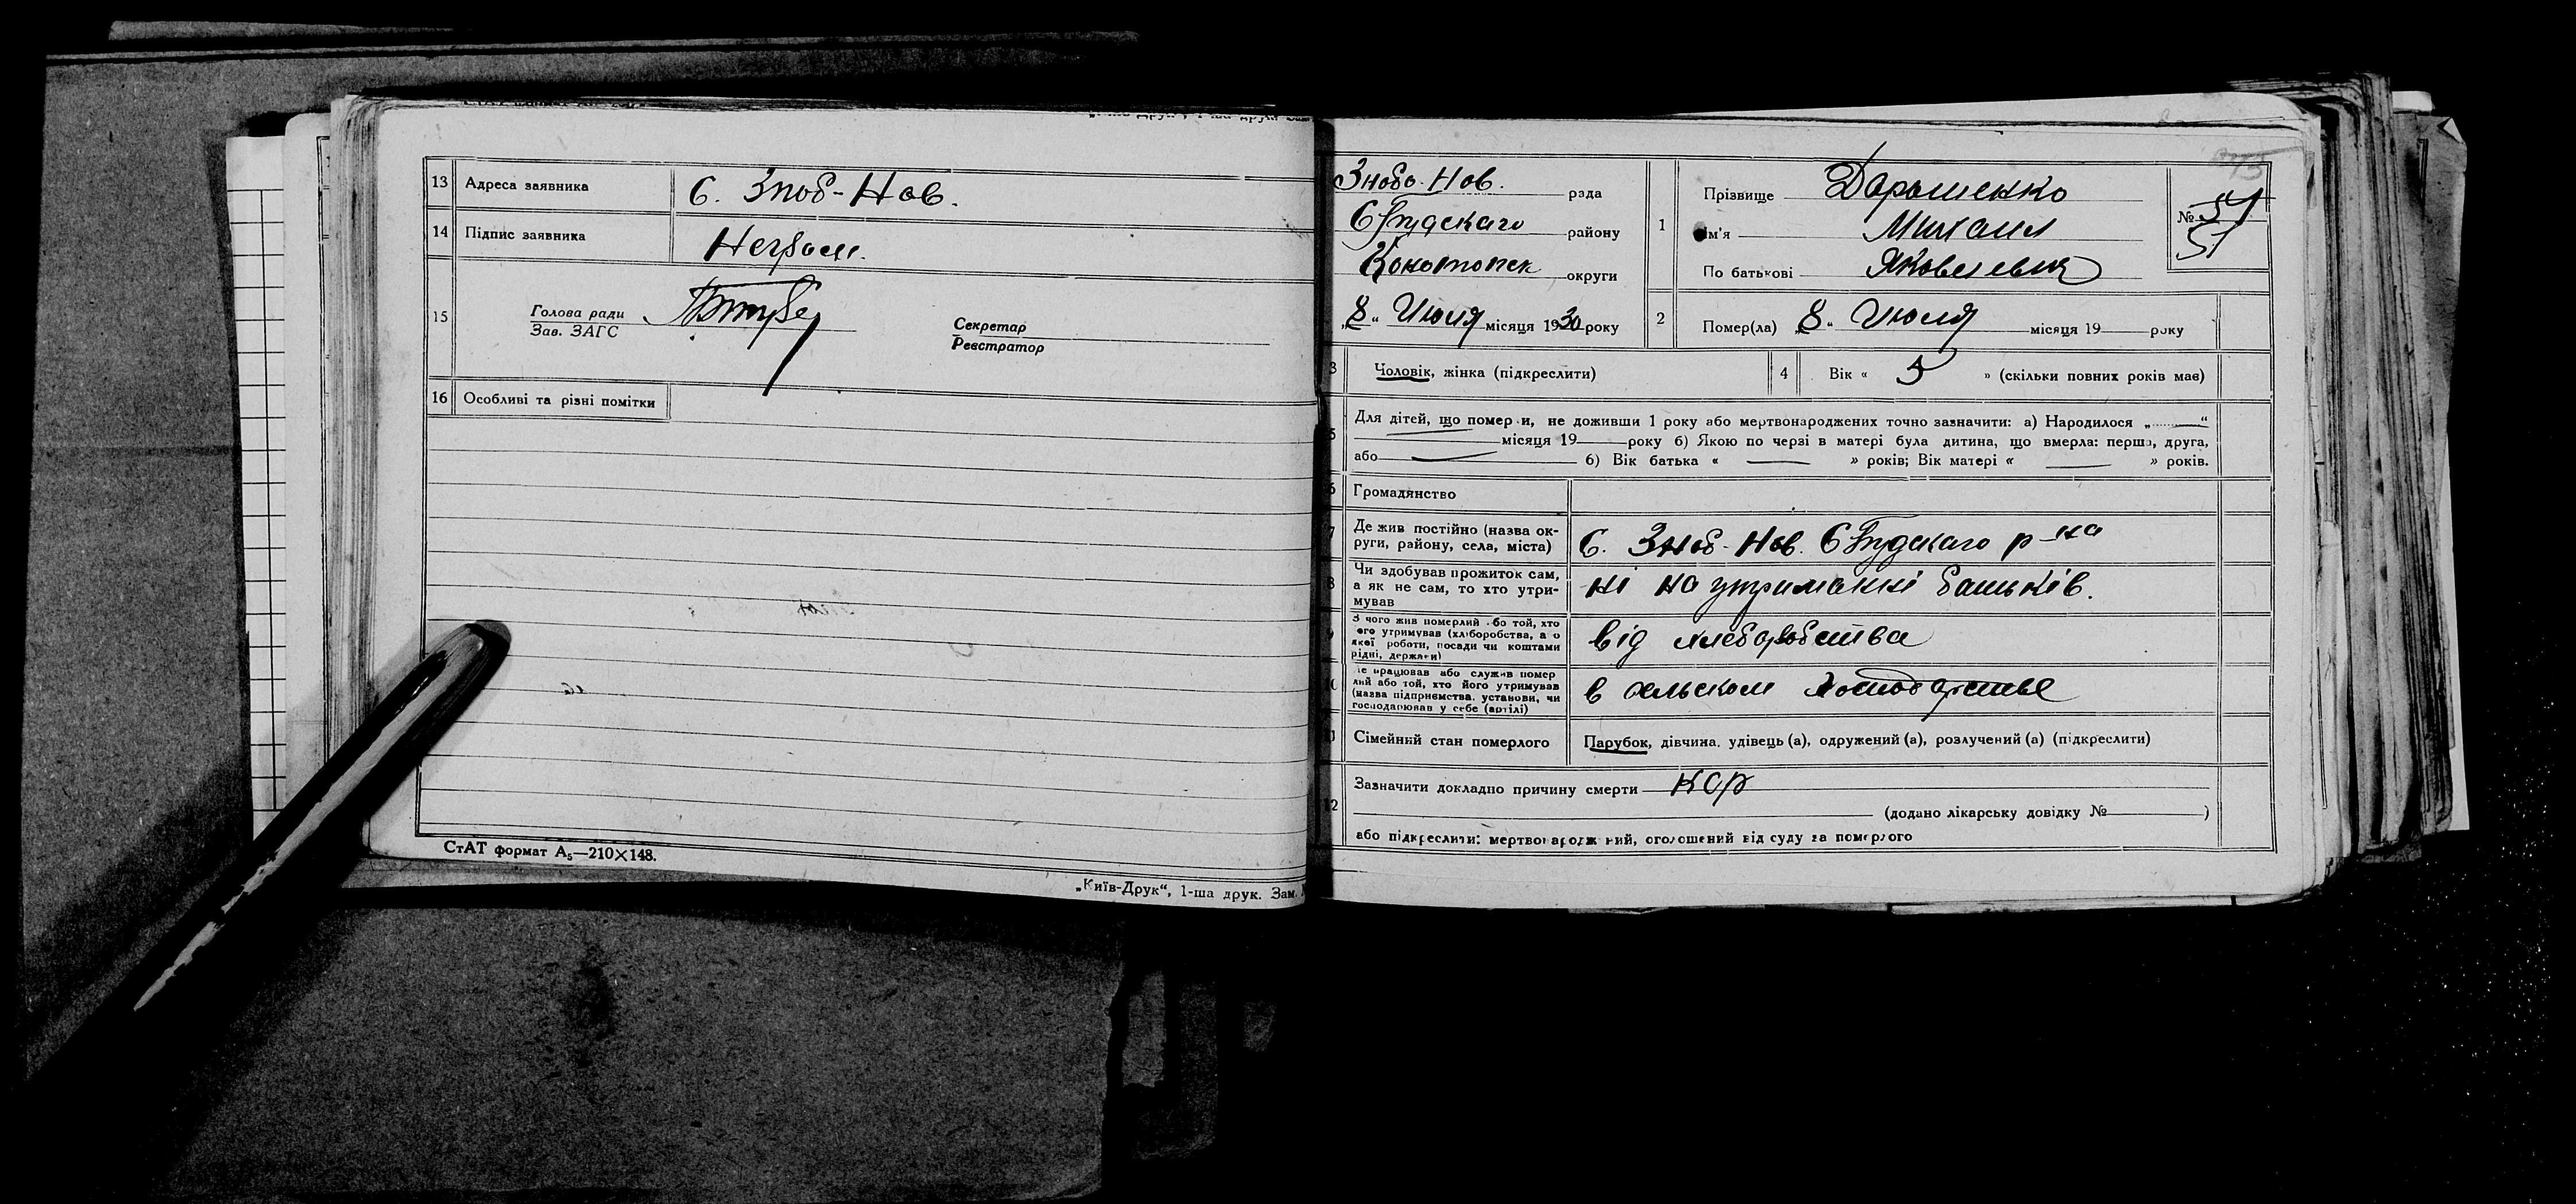 13 Адреса заявника С. Зноб-Нов.
14 Підпис заявника Неграм.
15 Голова ради
Зав. ЗАГС
Секретар
Реєстратор
16 Особливі та різні помітки
СтАТ формат А5—210×148.
„Київ-Друк“, 1-ша друк. Зам.
Знобо-Нов. рада
району
Конотопск округи
„8“ Июля місяця 1930 року
1 Прізвище Дорошенко
Ім'я Михаил
По батькові Яковлевич
№ 51
51
2 Помер(ла) „8“ Июля місяця 19 року
3 Чоловік, жінка (підкреслити)
4 Вік « 5 » (скільки повних років мав)
Для дітей, що померли, не доживши 1 року або мертвонароджених точно зазначити: а) Народилося „ “
місяця 19 року б) Якою по черзі в матері була дитина, що вмерла: перша, друга,
або б) Вік батька « » років; Вік матері « » років.
Громадянство
7 Де жив постійно (назва ок-
руги, району, села, міста) С. Зноб-Нов. р-на
8 Чи здобував прожиток сам,
а як не сам, то хто утри-
мував ні на утриманні батьків.
9 З чого жив померлий або той, хто
його утримував (хліборобства, а о
якої роботи, посади чи коштами
рідні, держави) від хлеборобства
Де працював або служив помер
лий або той, хто його утримував
(назва підприємства, установи, чи
господарював у себе (артілі) в сельском господарстве
Сімейний стан померлого Парубок, дівчина, удівець (а), одружений (а), розлучений (а) (підкреслити)
12 Зазначити докладно причину смерти кор
(додано лікарську довідку № )
або підкреслити: мертвонароджений, оголошений від суду за померлого